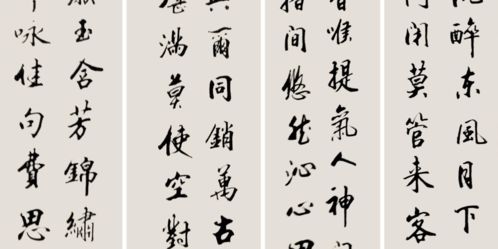 醉东風月下
闭莫管来客
唯提氣人神
指間悠然沁心
爾同銷萬古
满莫使空對
玉含芳錦繡
咏佳句費思